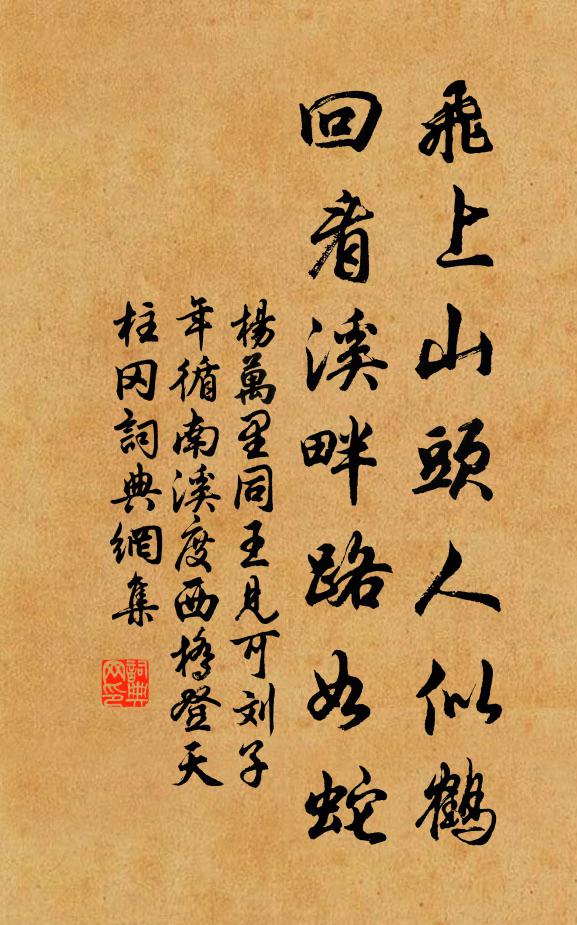 飛上山頭人似鶴
回看溪畔路如蛇
楊萬里同王見可刘子
年循南溪度西橋登天
柱冈詞典網集
詞典
网印